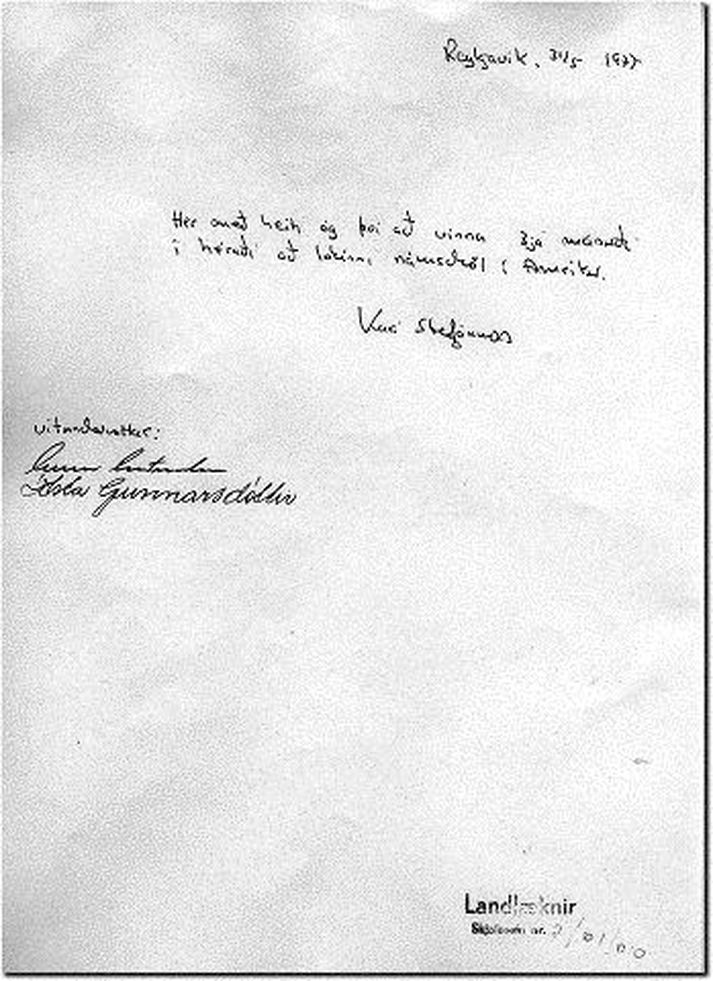 Reykjavik, 31/5 1977
Her með heiti ég því að vinna 3já mánuði
í héraði að lokinni námsdvöl í Ameríku.
Kári Stefánsson
vitundarvottar:
Gunnarsdóttir
Landlæknir
Skjalasafn nr.